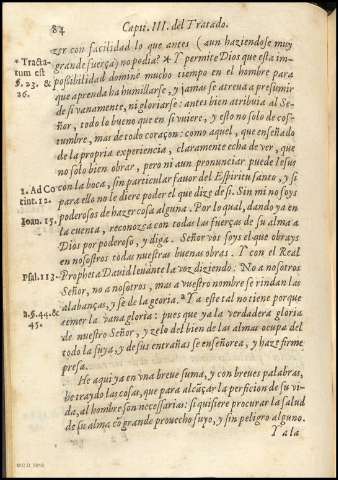 84 Capit. III. del Tratado.
zer con facilidad lo que antes (aun haziendose muy
grande fuerça) no podia? * Y permite Dios que esta im-
possibilidad domine mucho tiempo en el hombre para
que aprenda ha humillarse, y jamas se atreua a presumir
de si vanamente, ni gloriarse: antes bien atribuia al Se-
ñor, todo lo bueno que en si viere, y esto no solo de cos-
tumbre, mas de todo coraçon: como aquel, que enseñado
de la propria experiencia, claramente echa de ver, que
no solo bien obrar, pero ni aun pronunciar puede Iesus
con la boca, sin particular fauor del Espiritu santo, y si
para ello no le diere poder el que dize de si. Sin mi no soys
poderosos de hazer cosa alguna. Por lo qual, dando ya en
la cuenta, reconozca con todas las fuerças de su alma a
Dios por poderoso, y diga. Señor vos soys el que obrays
en nosotros todas nuestras buenas obras. Y con el Real
Propheta Dauid leuante la voz diziendo. No a nosotros
Señor, no a nosotros, mas a vuestro nombre se rindan las
alabanças, y se de la gloria. * Y a este tal no tiene porque
temer la vana gloria: pues que ya la verdadera gloria
de nuestro Señor, y zelo del bien de las almas ocupa del
todo la suya, y de sus entrañas se enseñorea, y haze firme
presa.
He aqui ya en vna breue suma, y con breues palabras,
he traydo las cosas, que para alcãçar la perficion de su vi-
da, al hombre son necessarias: si quisiere procurar la salud
de su alma cõ grande prouecho suyo, y sin peligro alguno.
Y a la
* Tracta-
tum est
§. 23. &
26.
1. Ad Co
rint. 12.
Ioan. 15.
Psal. 113.
a. §. 44. &
45.